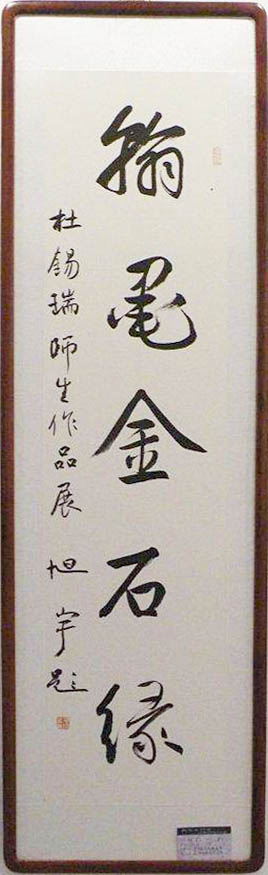 翰墨金石缘
杜锡瑞师生作品展 旭宇题